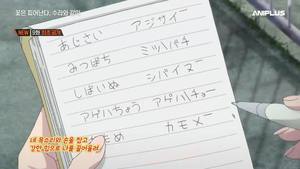 꽃은 피어난다, 수라와 같이
ANIPLUS
NEW 9화 최초공개
あじさい アジサイー
みつばち ミツバチ
しばいぬ シバイヌー
アゲハちょう アゲハチョー
もめ カモメー
내 목소리와 손을 잡고
강한 힘으로 나를 끌어올려